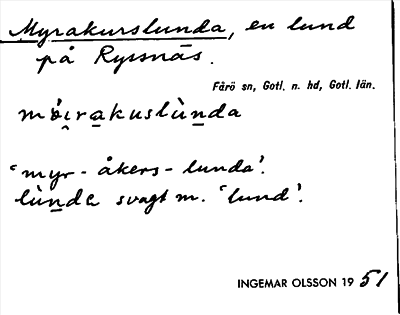 Myrakurslunda, en lund
på Ryssnäs.
Fårö sn, Gotl. n. hd, Gotl. län.
mɷ̇i̯ra̲kuslùn̲da
‘myr-åkers-lunda’.
lùn̲da svagt m. ‘lund’.
INGEMAR OLSSON 1951